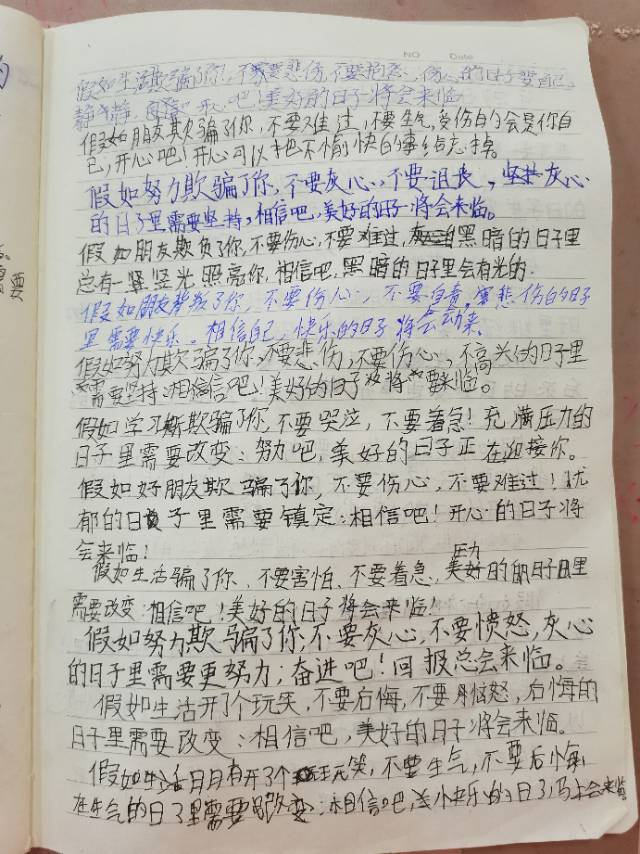 NO Date
假如生活欺骗了你,不要悲伤,不要抱怨,伤心的日子要自己
静静,开心吧,美好的日子将会来临
假如朋友欺骗了你,不要难过,不要生气,受伤的会是你自
己,开心吧!开心可以把不愉快的事给忘掉。
假如努力欺骗了你,不要灰心,不要沮丧,灰心
的日子里需要坚持,相信吧,美好的日子将会来临。
假如朋友欺负了你,不要伤心,不要难过,黑暗的日子里
总有一竖竖光照亮你,相信吧,黑暗的日子里会有光的.
假如朋友背叛了你,不要伤心,不要自责,悲伤的日子
里需要快乐。相信自己,快乐的日子将会到来。
假如努力欺骗了你,不要悲伤,不要伤心,不高兴的日子里
需要坚持:相信吧!美好的日子将要来临。
假如学习欺骗了你,不要哭泣,不要着急!充满压力的
日子里需要改变:努力吧,美好的日子正在迎接你。
假如好朋友欺骗了你,不要伤心,不要难过!忧
郁的日子里需要镇定:相信吧!开心的日子将
会来临!
压力
假如生活骗了你、不要害怕、不要着急,的日子里
需要改变:相信吧!美好的日子将会来临!
假如努力欺骗了你,不要灰心,不要愤怒,灰心
的日子里需要更努力;奋进吧!回报总会来临。
假如生活开了个玩笑,不要后悔,不要恼怒,后悔的
日子里需要改变:相信吧,美好的日子将会来临.
假如生活月月有开了个玩笑,不要生气,不要后悔,
在生气的日子里需要改变:相信吧,快乐的日子马上会来临
需要